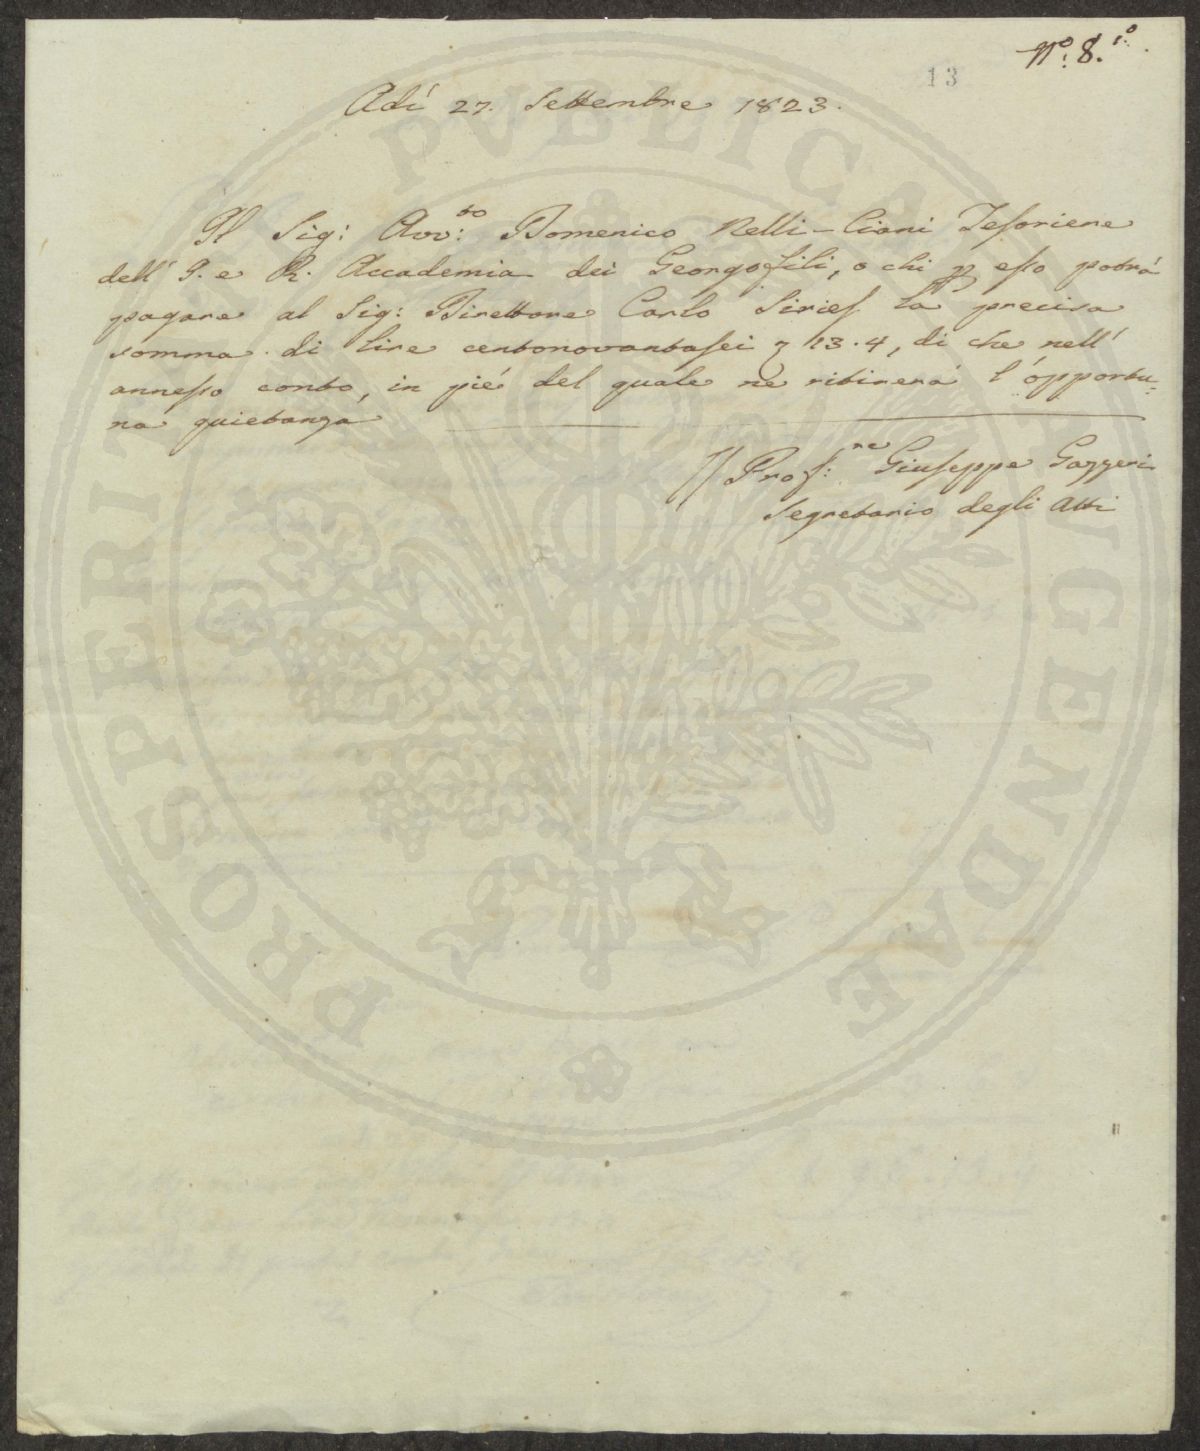 Nº: 8.iº
13
Adí 27. Settembre 1823.
Il Sig: Avv:to Domenico Nelli-Ciani Tesoriere
dell' I. e R. Accademia dei Georgofili, o chi p esso potrá
pagare al Sig: Direttore Carlo Siries la precisa
somma di lire centonovantasei 13.4, di che nell'
annesso conto, in pié del quale ne ritirerá l'opportu-
na quietanza
Il Prof:re Giuseppe Gazzeri
Segretario degli Atti
PROSPERITATI PVBLICAE AVGENDAE